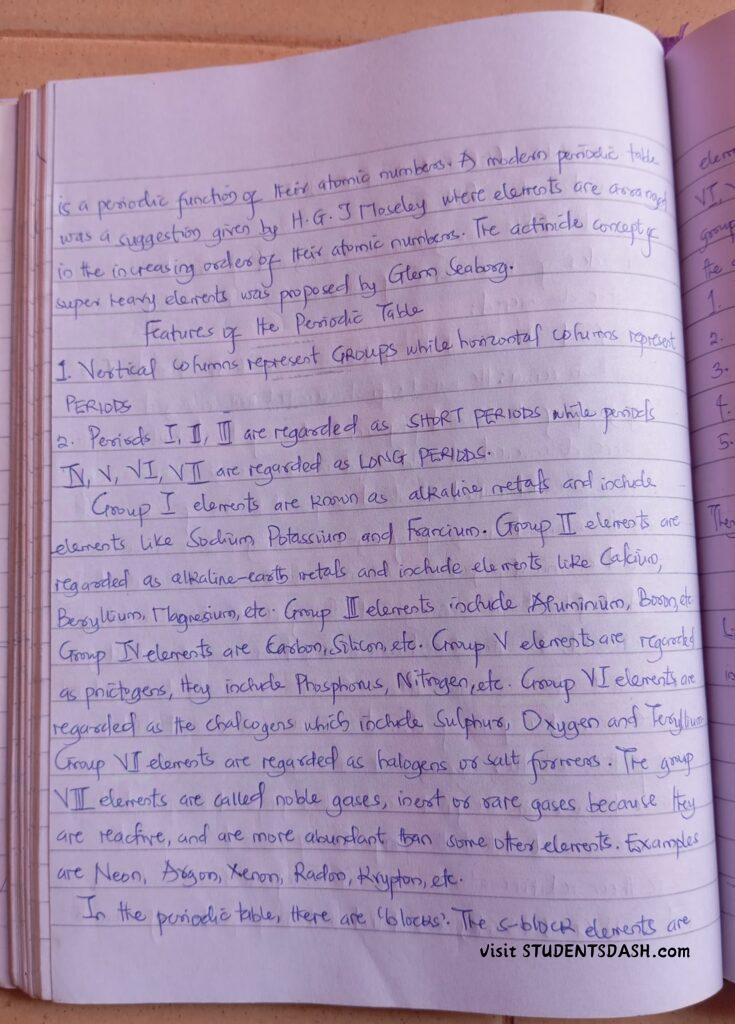 is a periodic function of their atomic numbers. A modern periodic table
was a suggestion given by H.G.J Moseley where elements are arranged
in the increasing order of their atomic numbers. The actinide concept of
super heavy elements was proposed by Glenn Seaborg.
Features of the Periodic Table
1. Vertical columns represent GROUPS while horizontal columns represent
PERIODS
2. Periods I, II, III are regarded as SHORT PERIODS while periods
IV, V, VI, VII are regarded as LONG PERIODS.
Group I elements are known as alkaline metals and include
elements like Sodium Potassium and Francium. Group II elements are
regarded as alkaline-earth metals and include elements like Calcium,
Beryllium, Magnesium, etc. Group III elements include Aluminium, Boron, etc
Group IV elements are Carbon, Silicon, etc. Group V elements are regarded
as pnictogens, they include Phosphorus, Nitrogen, etc. Group VI elements are
regarded as the chalcogens which include Sulphur, Oxygen and
Group VI elements are regarded as halogens or salt formers. The group
VIII elements are called noble gases, inert or rare gases because they
are reactive, and are more abundant than some other elements. Examples
are Neon, Argon, Xenon, Radon, Krypton, etc.
In the periodic table, there are 'blocks'. The s-block elements are
visit STUDENTSDASH.com
VI, V
group
the s
1.
2.
3.
4.
5.